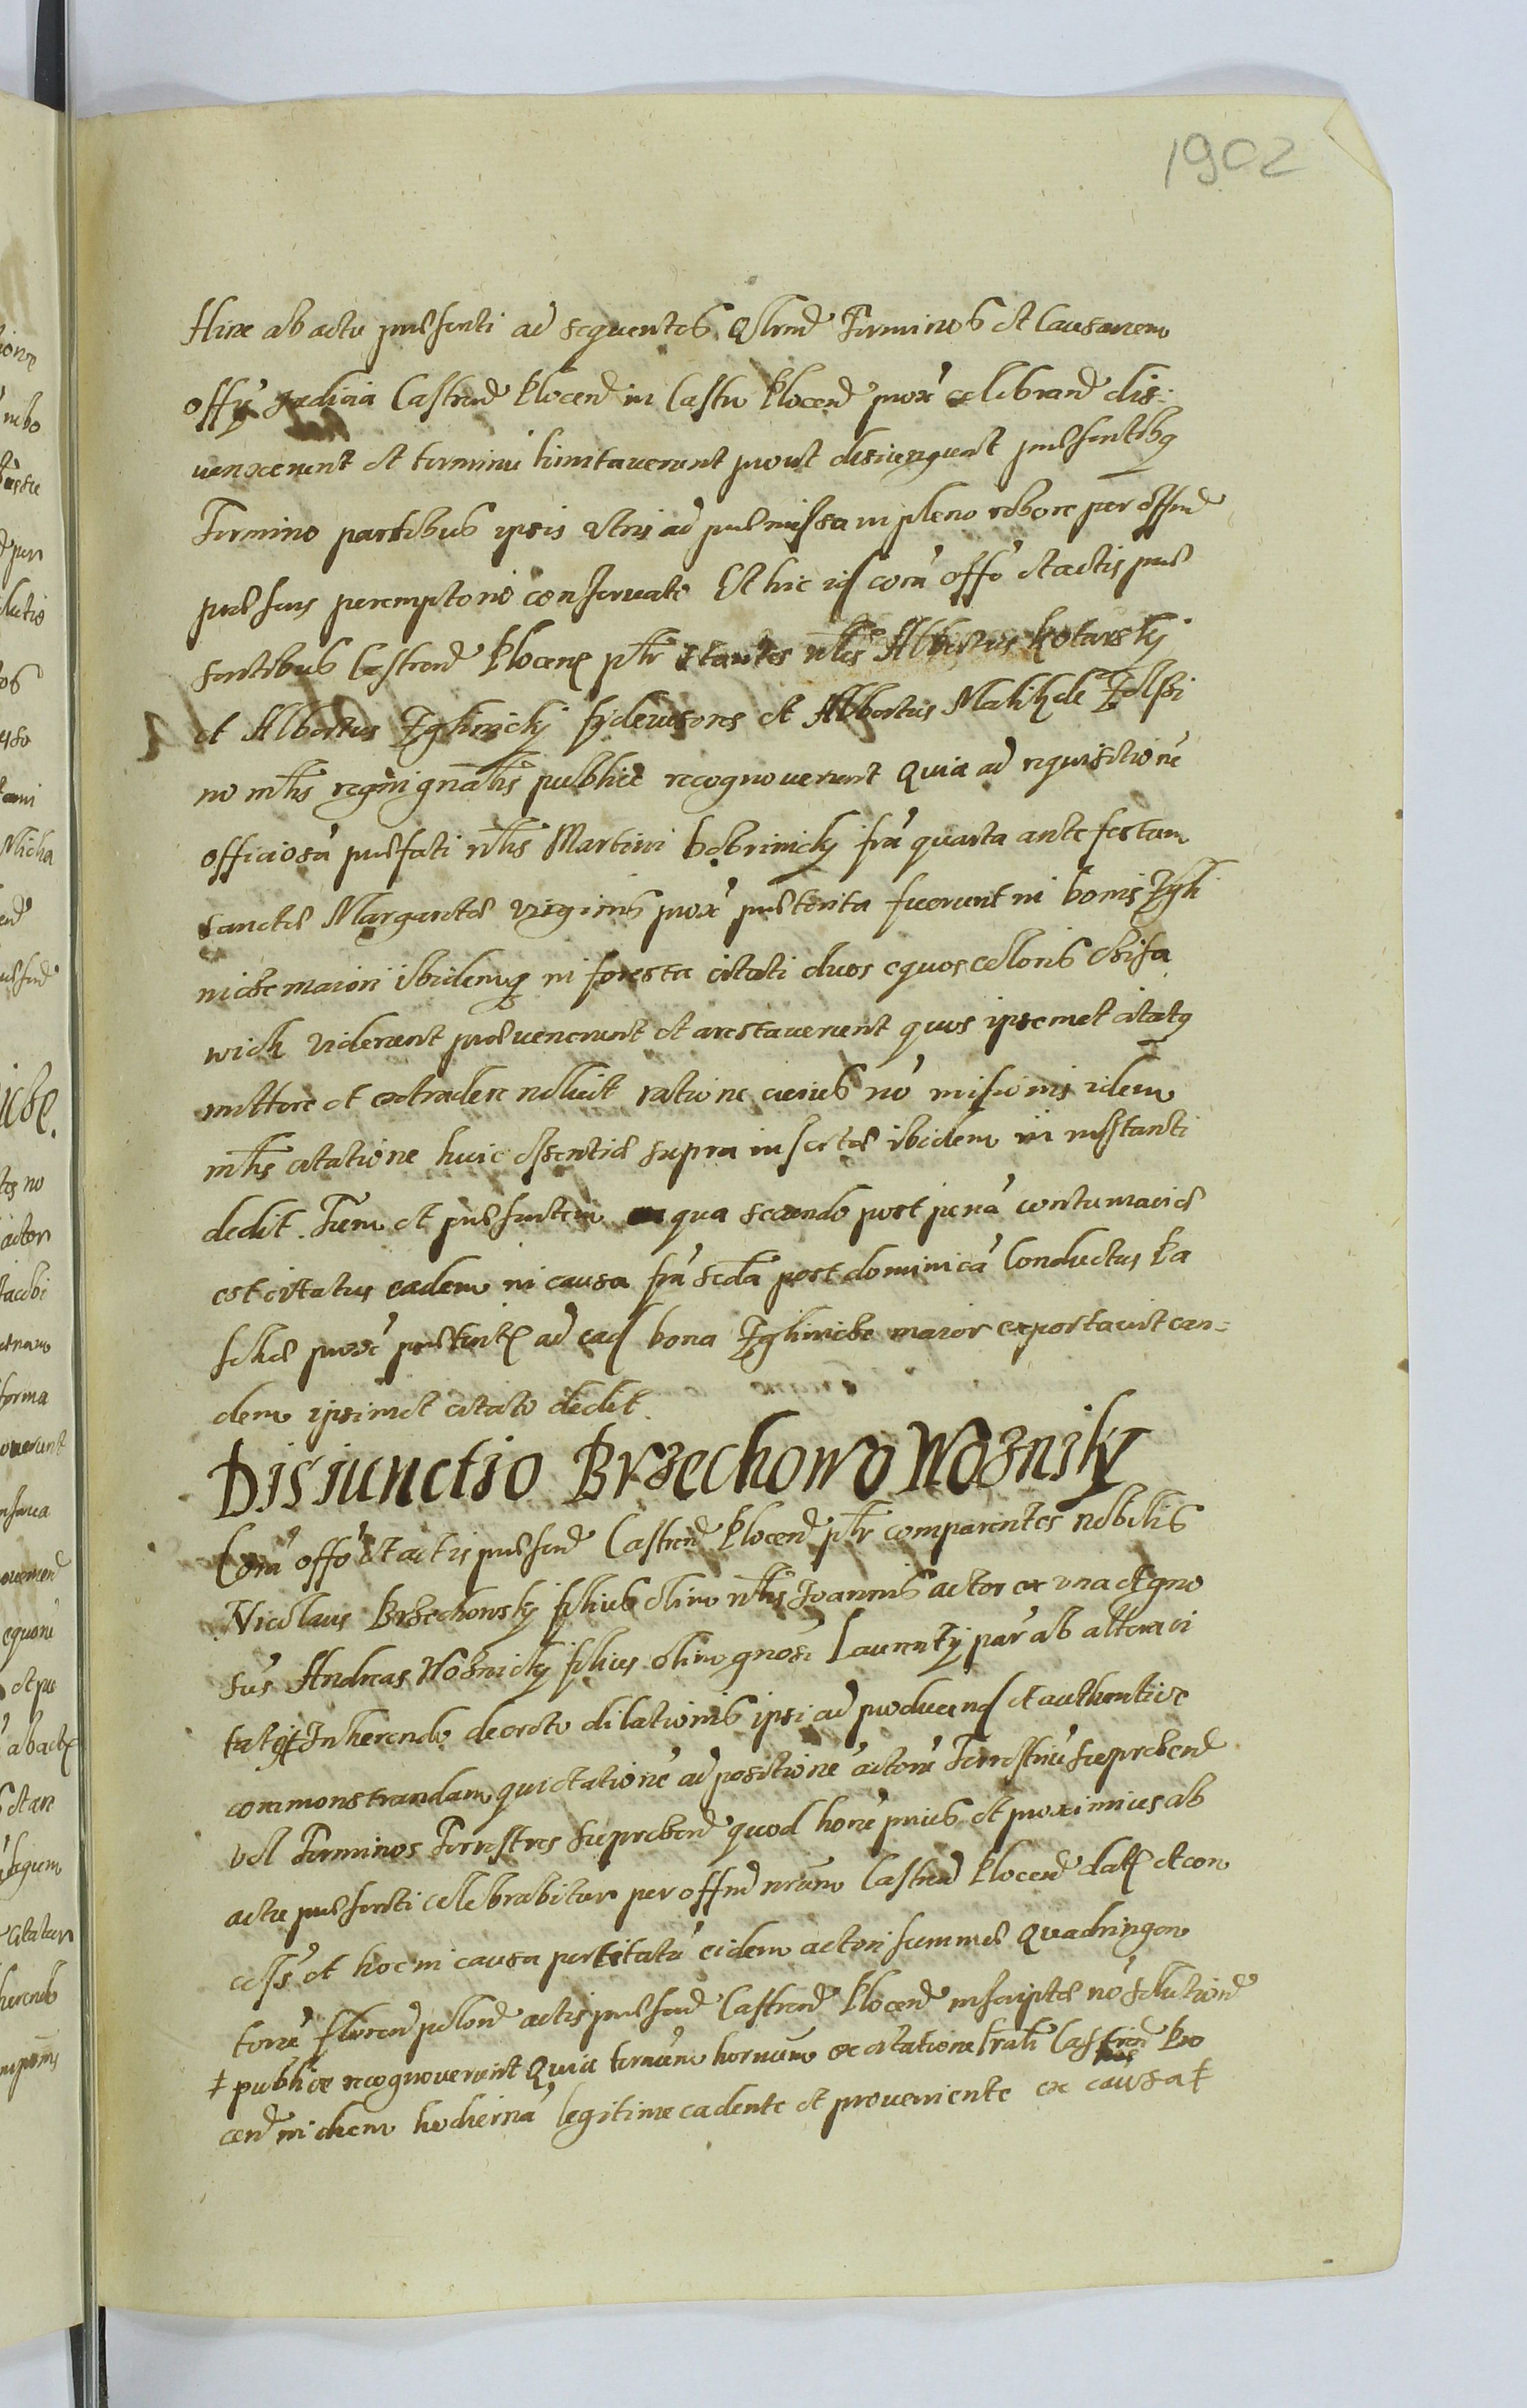 1902
Hinc ab actu praesenti ad sequentes Qlrend Terminos et Causarum
offy Judicia Castrend Plocend in Castro Plocend prox celebrand dis-
iunxerunt et terminu limitaverunt prout disiungunt praesentibq
Termino partibus ipsis Utris ad praemissa in pleno robore per offnd
praesens peremptorie conservato Et hic id corā offō et actis prae
sentibus Castrend Plocens ptr stantes nbles Albertus Kotarsky
et Albertus Zglinicky fideiussores et Albertus Malik de
no mtlis regni gnalis publice recognoverunt Quia ad requisitionē
officiosā praefati nblis Martini Bobrinicky fria quarta ante festum
sanctae Margaretae virginis prox praeterita fuerunt in bonis Zgli
nicze maiori ibidemq in foresta citati duos equos coloris
viderunt praevenerunt et arestaverunt quos ipsemet citatq
mittere et extradere noluit ratione cuius nō misionis idem
mtlis citatione huic essentiae supra insertae ibidem in instanti
dedit. Tum et praesentem qua secundo post penā contumaciae
est citatus eadem in causa fria scda post dominicā Conductus Pa
schae prox praeterit ad ead bona Zglinicze maior exportavit ean-
dem ipsimet citato dedit.
Disiunctio Brzechowo Wozniky
Corā offō et actis praesend Castrend Plocend ptr comparentes nobilis
Nicolaus Brzechowsky filius olim nblis Joannis actor ex una et gno
sus Andreas Woznicky filius olim gnosi Laurenty par ab altera ci
tatq ‡ Inherendo decreto dilationis ipsi ad producend et authentice
commonstrandam quictationē ad positionē actorū Terrestriū Sieprcbend
vel Terminos Terrestres Sieprcbend quod horū prius et proximius ab
actu praesenti celebrabitur per offnd nrum Castrend Plocend dat et con
cess et hoc in causa partitatū eidem actori summae Quadringen
torū florend polond actis praesend Castrend Plocend inscriptae nō solutiond
‡ publice recognoverunt Quia termum hornum ex citatione Castrend Plo
cend in diem hodiernā legitime cadente et proveniente ex causa ‡